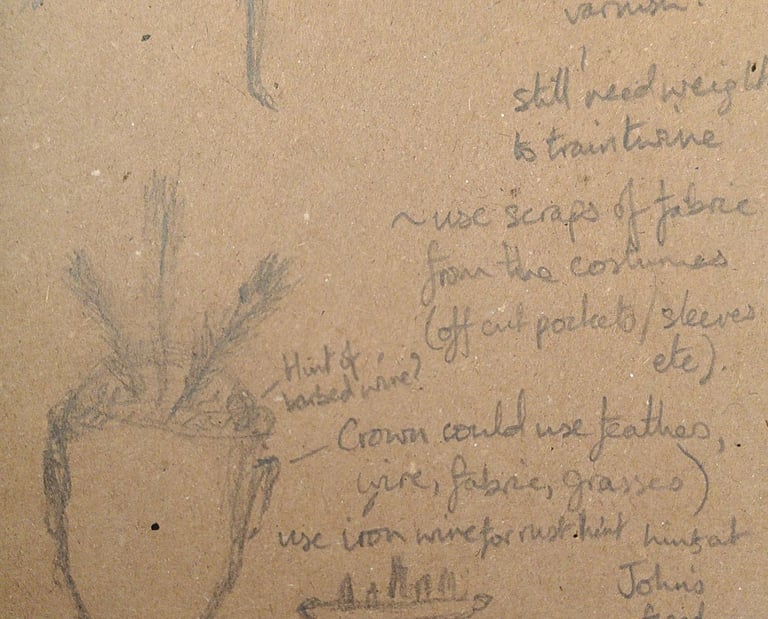 varnish?
still need weight
to train twine
~use scraps of fabric
from the costumes
(off cut pockets/sleeves
etc).
Hint of
barbed wire?
Crown could use feathers,
wire, fabric, grasses)
use iron wire for rust hint
hints at
John's